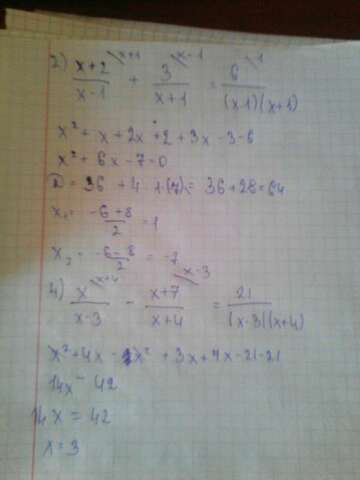 2) (x+2)/(x-1) \x+1 + 3/(x+1) \x-1 = 6/((x-1)(x+1)) \1
x² + x + 2x + 2 + 3x - 3 - 6
x² + 6x - 7 = 0
D = 36 + 4 · 1 · (7) = 36 + 28 = 64
x₁ = (-6+8)/2 = 1
x₂ = (-6-8)/2 = -7
4) x/(x-3) \x+4 - (x+7)/(x+4) \x-3 = 21/((x-3)(x+4)
x² + 4x - x² + 3x + 7x - 21 - 21
14x - 42
14x = 42
x = 3